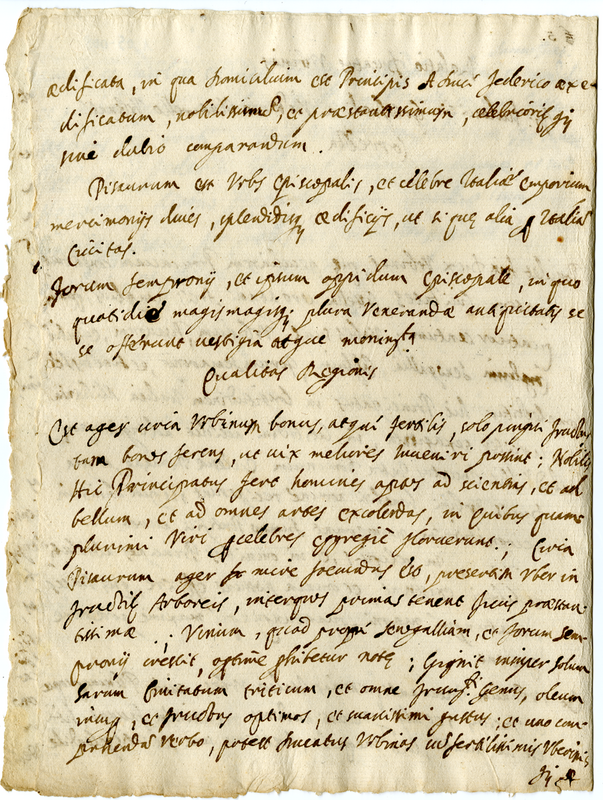 5.
ædificata, in qua domicilium est Principis à Duci Federico æxe-
dificatum, nobilissimum, et præstantissimum, celebrioribusq;
sine dubio comparandum.
Pisaurum est Vrbs Episcopalis, et celebre Italiæ emporium
mercimonijs diues, splendidisq; ædificijs, ut si quæ alia Italiæ
Ciuitas.
Forum Sempronij, et ipsum oppidum Episcopale, in quo
quotidiè magis magisq; plura Venerandæ antiquitatis se
se offerunt uestigia atque
Qualitas Regionis
Est ager circa Vrbinum bonus, atqui fertilis, solo pingui fructus
tam bonos ferens, ut uix meliores inueniri possint; Nobilis
Hic Principatus fert homines aptos ad scientias, et ad
bellum, et ad omnes artes excolendas, in quibus quam
plurimi Viri celebres eggregiè floruerunt; Circa
Pisaurum ager mire foecundus est, presertim Vber in
fructibus Arboreis, inter quos primas tenent ficus præstan-
tissimæ; Vinum, quod propè Senegalliam, et Forum Sem-
pronij crescit, optimæ notæ; Gignit insuper solum
harum Ciuitatum triticum, et omne genus, oleum
et fructus optimos, et suauissimi gustus; et uno com-
prehendas verbo, potest Ducatus Vrbinas